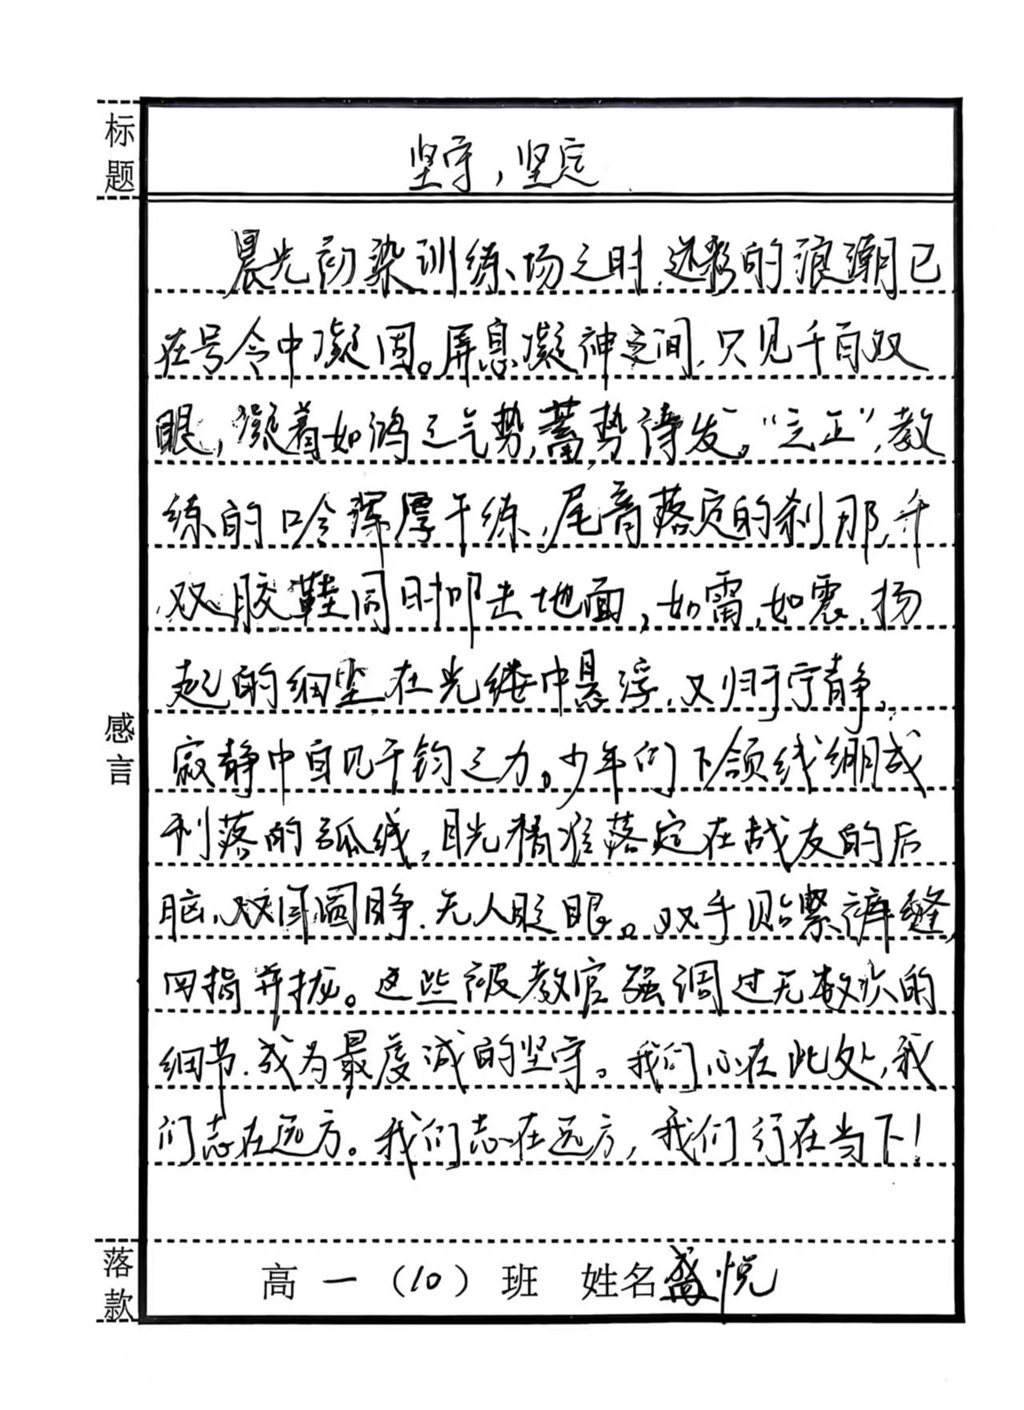 标题
坚守,坚定
晨光初染训练场之时,迷彩的浪潮已
在号令中凝固。屏息凝神之间,只见千百双
眼,凝着如鸿之气势,蓄势待发。“立正”,教
练的口令浑厚干练,尾音落定的刹那,千
双胶鞋同时叩击地面,如雷,如震,扬
起的细尘在光缕中悬浮,又归于宁静。
寂静中自见千钧之力。少年们下颌线绷成
利落的弧线,目光精准落定在战友的后
脑,双目圆睁,无人眨眼。双手贴紧裤缝,
四指并拢。这些被教官强调过无数次的
细节,成为最虔诚的坚守。我们心在此处,我
们志在远方。我们志在远方,我们行在当下!
感言
落款
高一(10)班 姓名盛悦